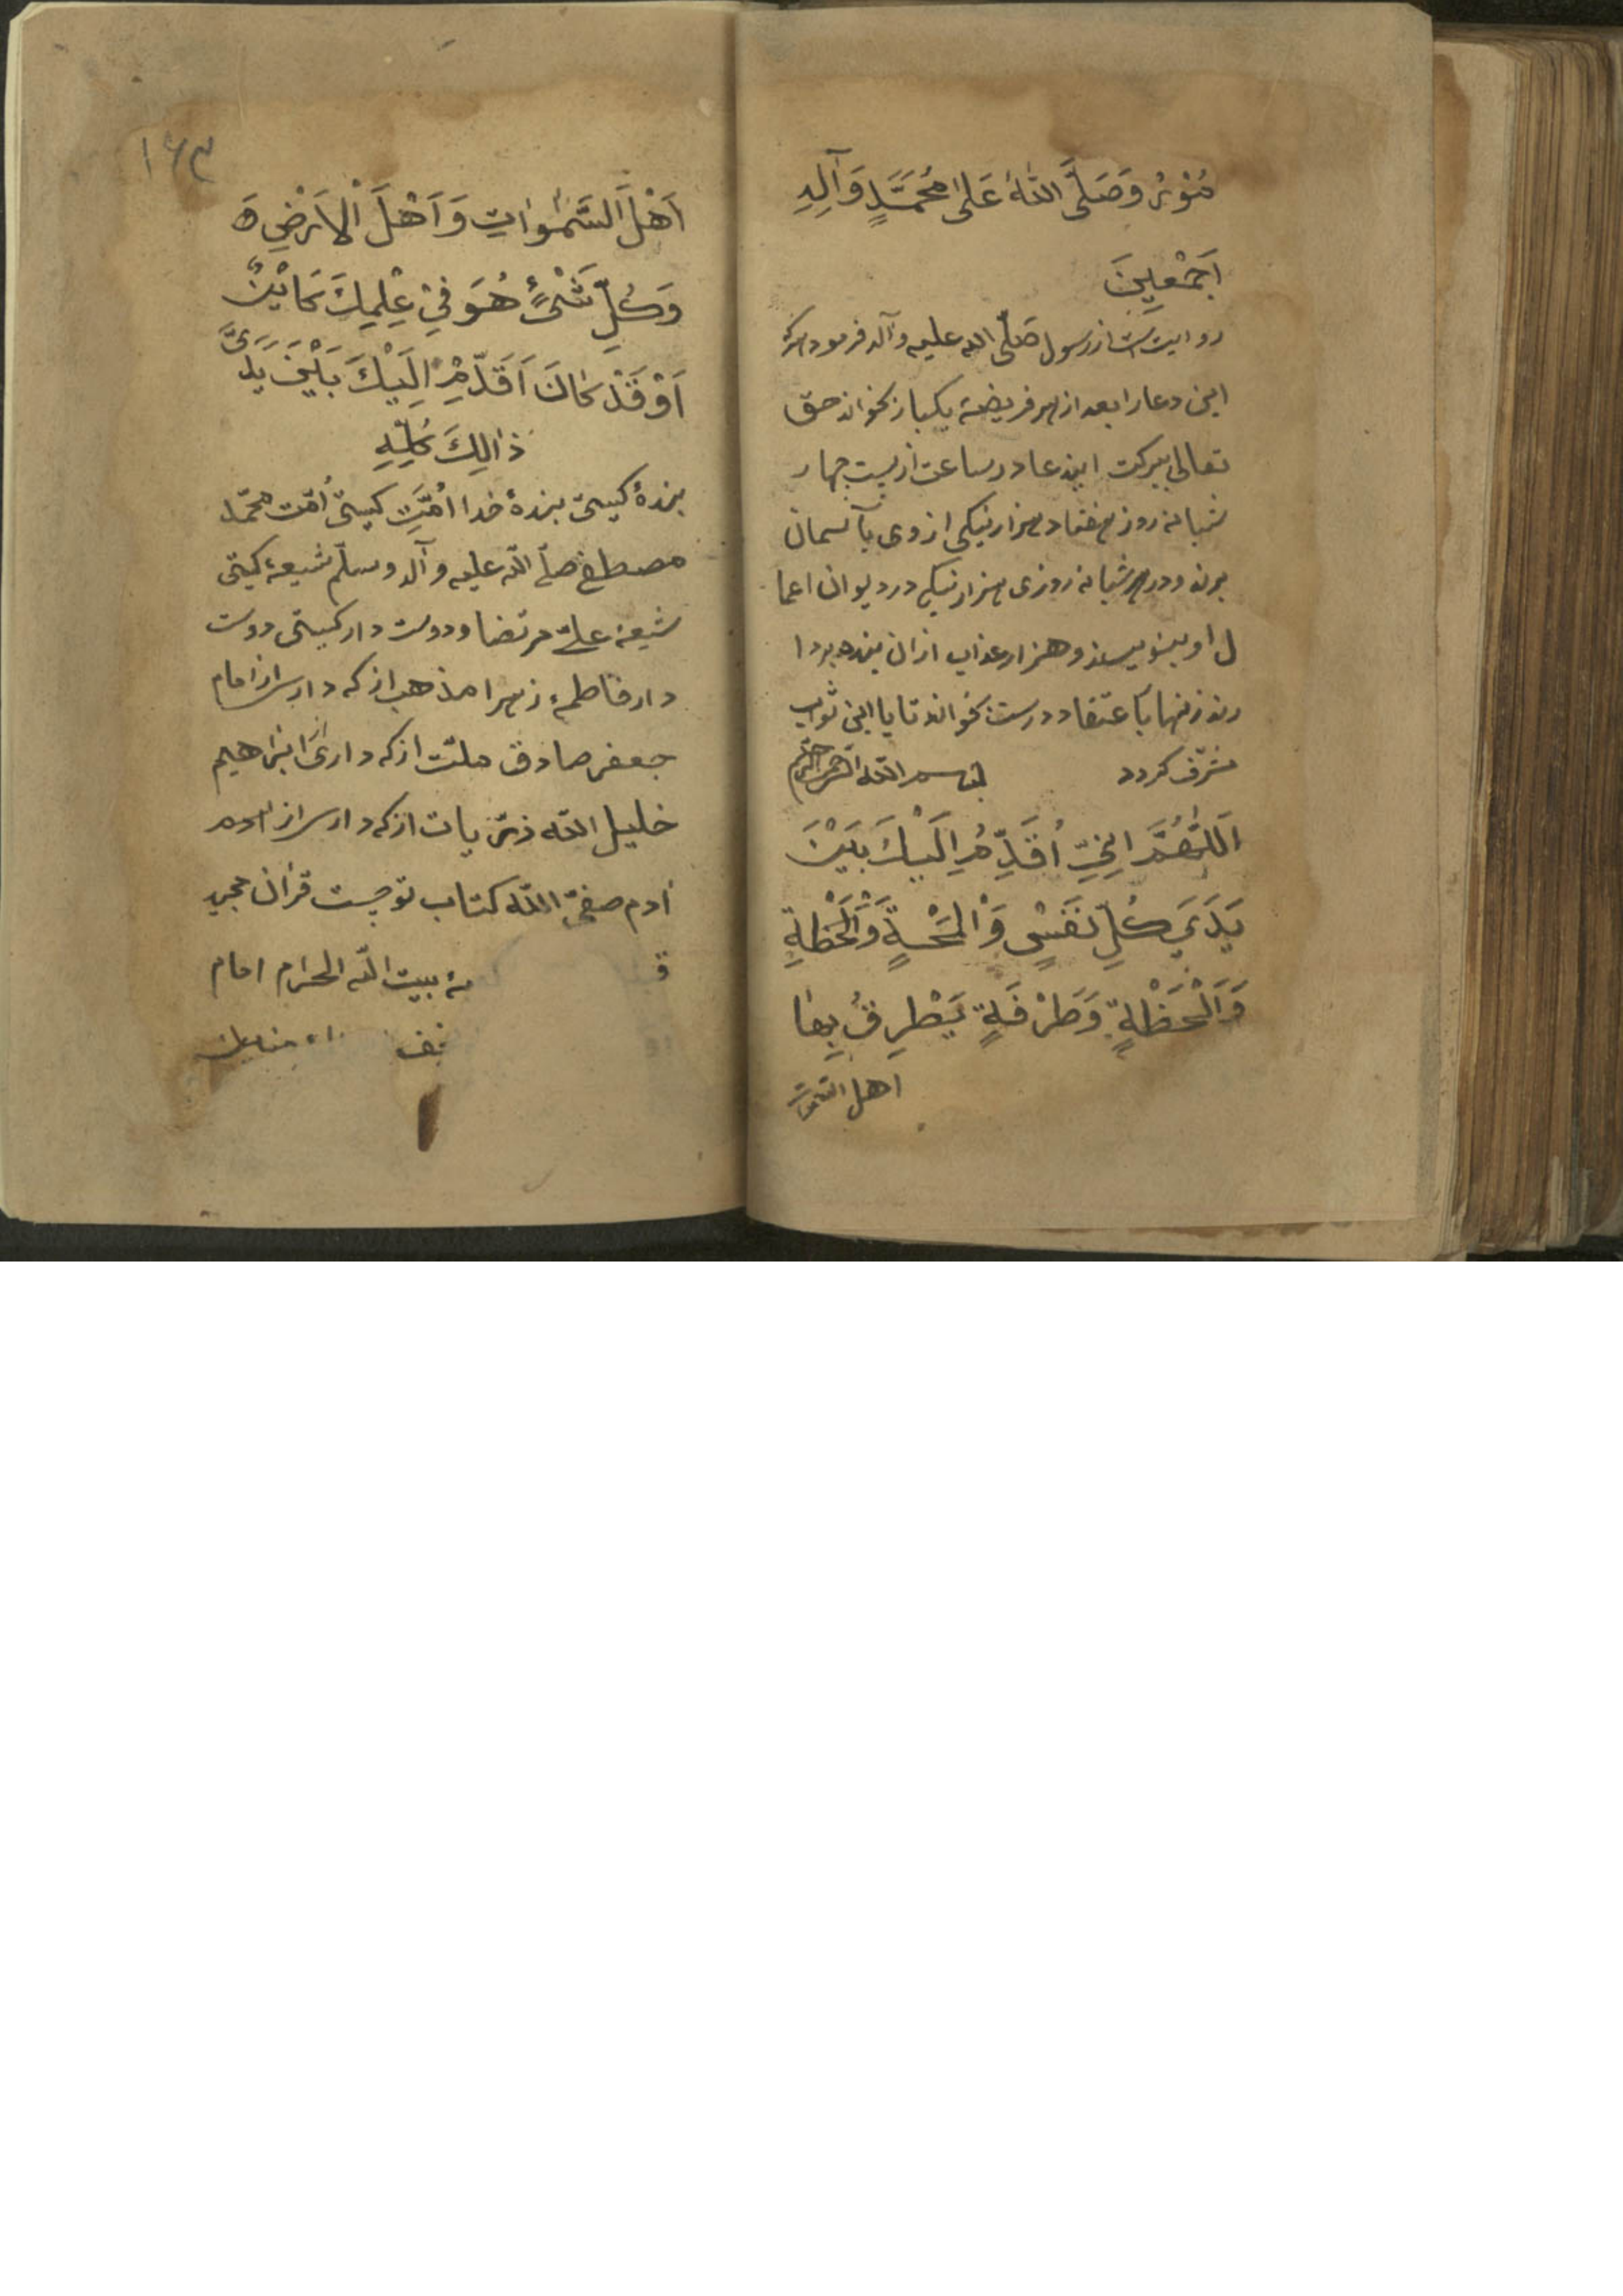 مُنَوَّرٌ وَصَلَّی اللّٰهُ عَلٰی مُحَمَّدٍ وَآلِهِ
اَجْمَعِینَ
روایت است از رسول صَلّی الله علیه وآله فرمود هرکه
این دعا را بعد از هر فریضه یکبار بخواند حق
تعالی ببرکت ایندعا در ساعت از بیست چهار
شبانه روز هفتاد هزار نیکی از وی بآسمان
برند و در هر شبانه روزی هزار نیکی در دیوان اعما
ل او بنویسند و هزار عذاب ازان بنده بردا
رند زنهار باعتقاد درست بخواند تا باین ثواب
مشرّف کردد بسم اللّه الرّحمن الرّحیم
اَللّٰهُمَّ اِنِّی اُقَدِّمُ اِلَیْكَ بَیْنَ
یَدَیَ كُلِّ نَفَسٍ وَلَْمْحَةٍ وَلَْحْظَةٍ
وَلَْحْظَةٍ وَطَرْفَةٍ یَطْرِفُ بِهٰا
اهل السّموات
۱۶۳
اَهْلَ السَّمٰوٰاتِ وَاَهْلَ الْاَرْضِ ه
وَكُلِّ شَیْءٍ هُوَ فِی عِلْمِكَ كَائِنٌ
اَوْ قَدْ كٰانَ اُقَدِّمُ اِلَیْكَ بَیْنَ یَدَیَّ
ذٰالِكَ كُلِّهِ
بندهٔ کیستی بندهٔ خدا اُمَّتِ کیستی اُمّت محمّد
مصطفی صلّی اللّه علیه وآله وسلّم شیعهٔ کیستی
شیعهٔ علی مرتضا و دوست دار کیستی دوست
دار فاطمهٔ زهرا مذهب از که داری از امام
جعفر صادق ملّت از که داری از ابراهیم
خلیل اللّه ذرّیات از که داری از آدم
آدم صفی اللّه کتاب تو چیست قرآن مجید
بیت اللّه الحرام امام